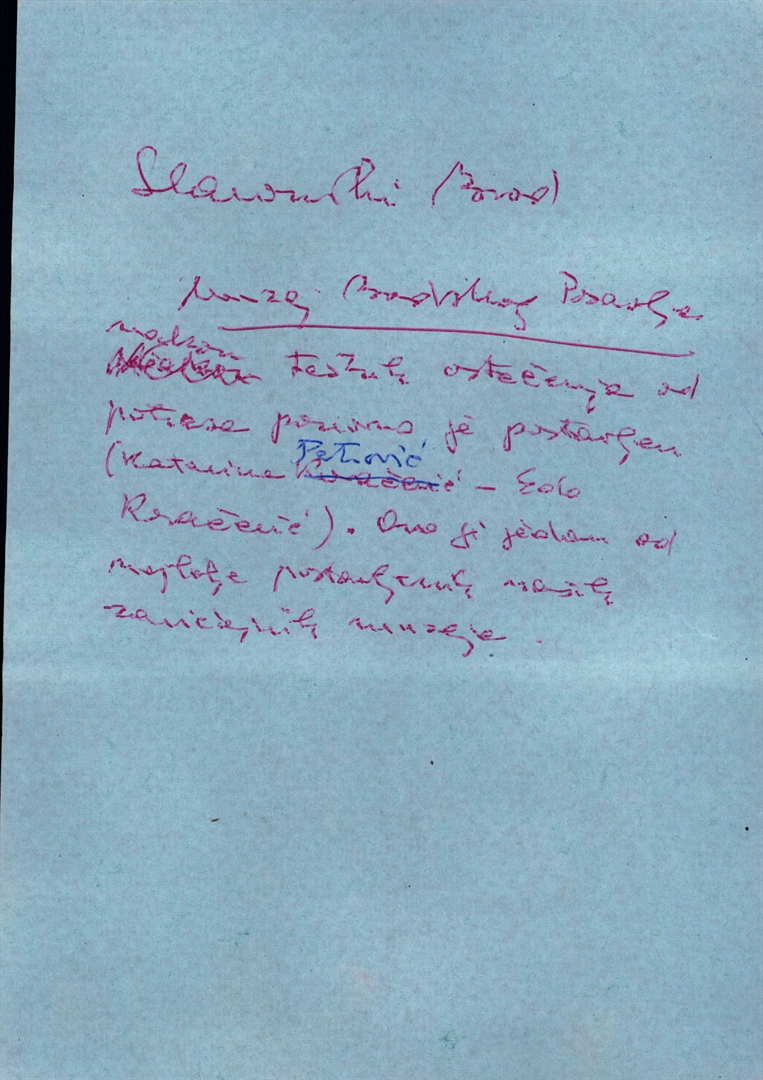 Slavonski Brod
Muzej Brodskog Posavlja
nakon
teških oštećenja od
potresa ponovno je postavljen
Petrović
(Katarina – Edo
Kovačević). Ono je jedan od
najbolje postavljenih naših
zavičajnih muzeja.